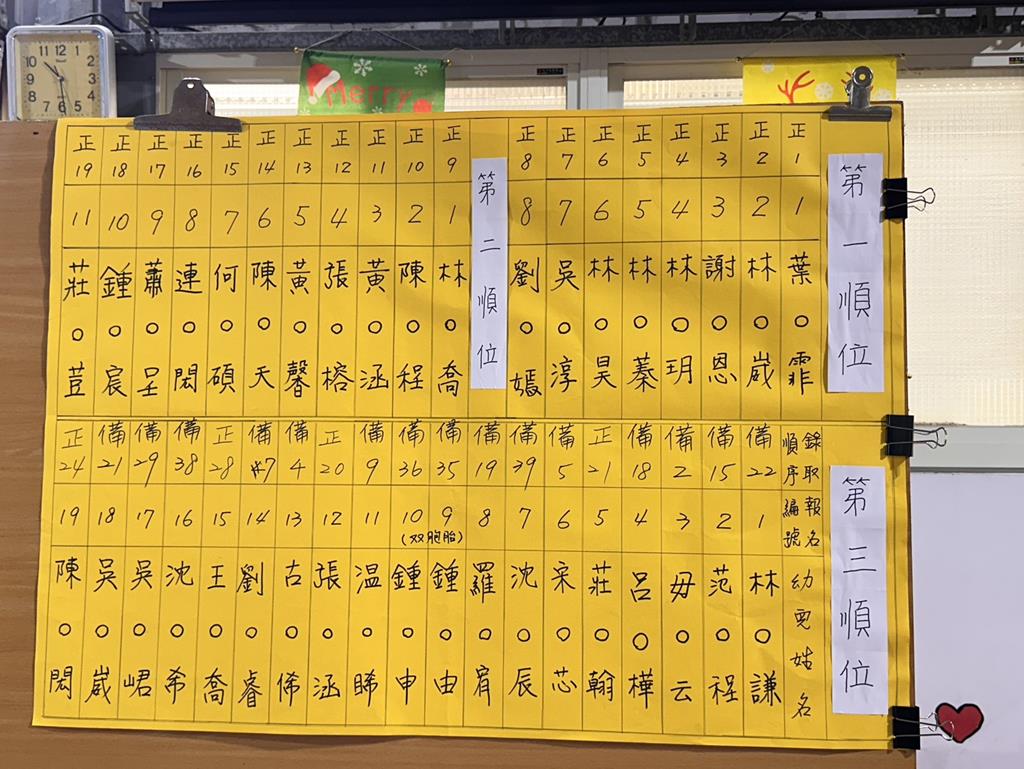 Merry
第一順位
正1 1 葉○霏
正2 2 林○崴
正3 3 謝○恩
正4 4 林○玥
正5 5 林○蓁
正6 6 林○昊
正7 7 吳○淳
正8 8 劉○嫣
第二順位
正9 1 林○喬
正10 2 陳○程
正11 3 黃○涵
正12 4 張○榕
正13 5 黃○馨
正14 6 陳○天
正15 7 何○碩
正16 8 連○閎
正17 9 蕭○呈
正18 10 鍾○宸
正19 11 莊○荳
第三順位
錄取順序 報名編號 幼兒姓名
備22 1 林○謙
備15 2 范○程
備2 3 毋○云
備18 4 呂○樺
正21 5 莊○翰
備5 6 宋○芯
備39 7 沈○辰
備19 8 羅○宥
備35 9 鍾○由
備36 10 鍾○申
(双胞胎)
備9 11 温○睎
正20 12 張○涵
備4 13 古○俙
備7 14 劉○睿
正28 15 王○喬
備38 16 沈○希
備29 17 吳○峮
備21 18 吳○崴
正24 19 陳○閎